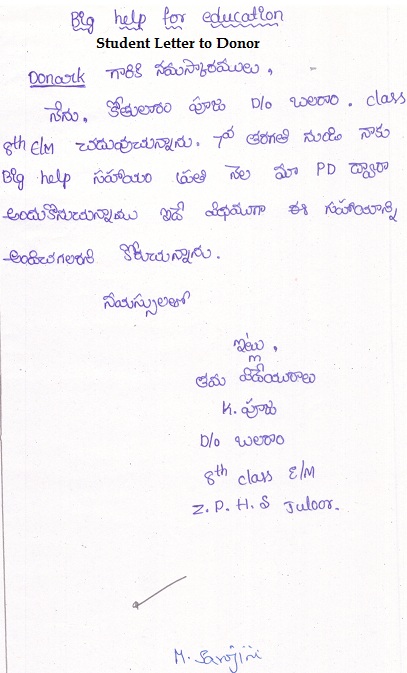 Big help for education
Student Letter to Donor
Donark గారికి నమస్కారములు,
నేను, కోతులారం పూజ D/o బలరాం. class
8th E/M చదువుచున్నాను. 7వ తరగతి నుండి నాకు
Big help సహాయం ప్రతి నెల మా PD ద్వారా
అందుకొనుచున్నాము ఇదే విధముగా ఈ సహాయాన్ని
అందించగలరని కోరుచున్నాను.
ఇట్లు,
తమ విధేయురాలు
K. పూజ
D/o బలరాం
8th class E/M
Z.P.H.S Juloor.
M. Sarojini